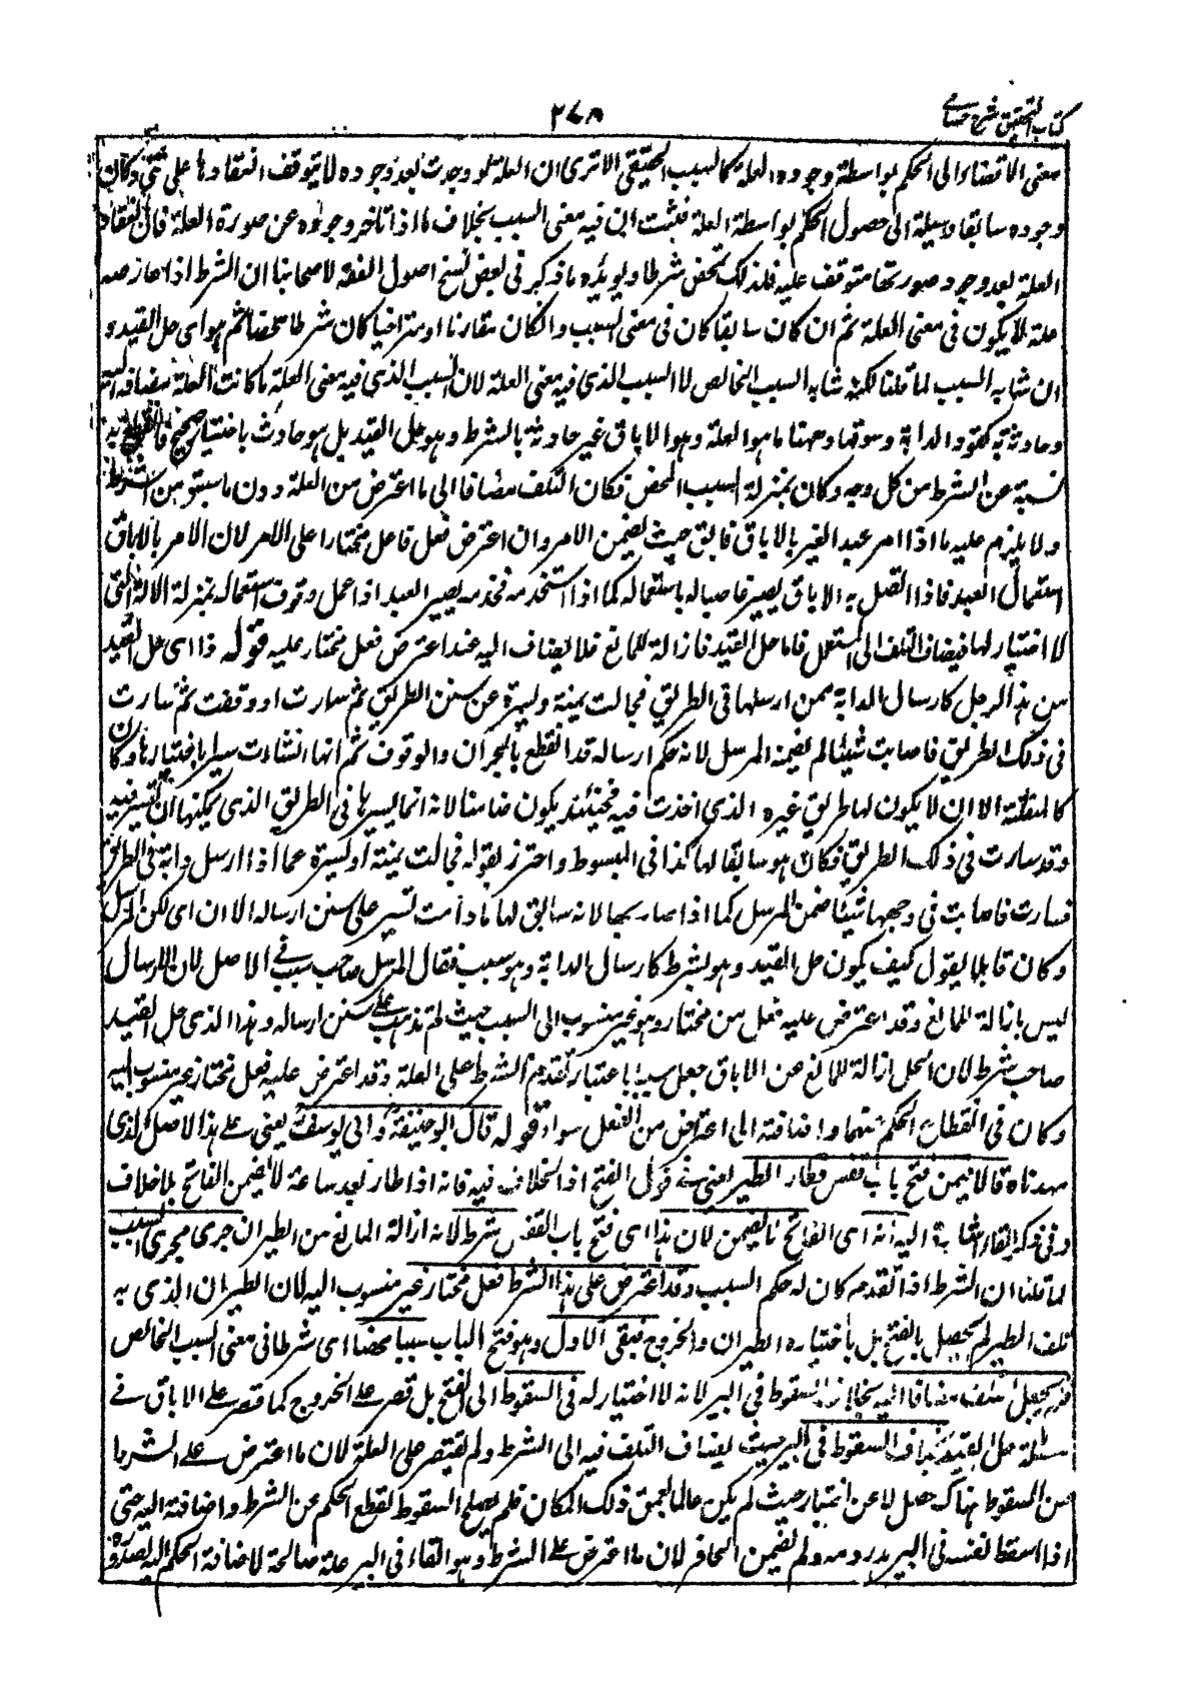 كتاب التحقيق شرح حسامى
٢٧٨
معنى الافضاء الى الحكم بواسطة وجوده العلة كالسبب الحقيقى الا ترى ان العلة لو وجدت بعد وجوده لا يتوقف انعقادها على شئ وكان
وجوده سابقا وسيلة الى حصول الحكم بواسطة العلة فثبت ان فيه معنى السبب بخلاف ما اذا تاخر وجوده عن صورة العلة فان انعقاد
العلة بعد وجود صورتها متوقف عليه فلذلك تمحض شرطا ويؤيده ما ذكر فى بعض نسخ اصول الفقه لاصحابنا ان الشرط اذا عارضه
علة لا يكون فى معنى العلة ثم ان كان سابقا كان فى معنى السبب وان كان مقارنا او متراخيا كان شرطا محضا ثم هو اى حل القيد و
ان شابه السبب لما قلنا لكنه شابه السبب الخالص لا السبب الذى فيه معنى العلة لان السبب الذى فيه معنى العلة ما كانت العلة مضافة اليه
وحادثة به كقود الدابة وسوقها وههنا ما هو العلة وهو الاباق غير حادثة بالشرط وهو حل القيد بل هو حادث باختيار صحيح فانقطع به
نسبته عن الشرط من كل وجه وكان بمنزلة السبب المحض فكان التلف مضافا الى ما اعترض من العلة دون ما سبق من الشرط
ولا يلزم عليه ما اذا امر عبد الغير بالاباق فابق حيث يضمن الامر وان اعترض فعل فاعل مختار على الامر لان الامر بالاباق
استعمال العبد فاذا اتصل به الاباق يصير غاصبا له باستعماله كما اذا استخدمه فخدمه يصير العبد اذا عمل وفق استعماله بمنزلة الالة التى
لا اختيار لها فيضاف التلف الى المستعمل فاما حل القيد فازالة للمانع فلا يضاف اليه عند اعتراض فعل مختار عليه قوله ذا اى حل القيد
من هذا الرجل كارسال الدابة ممن ارسلها فى الطريق فجالت يمنة ويسرة عن سنن الطريق ثم سارت او وقفت ثم سارت
فى ذلك الطريق فاصابت شيئا لم يضمنه المرسل لانه حكم ارساله قد انقطع بالجولان والوقوف ثم انها انشات سيرا باختيارها وكان
كالمنفلتة الا ان لا يكون لها طريق غيره الذى اخذت فيه فحينئذ يكون ضامنا لانه انما يسيرها فى الطريق الذى يمكنها ان تسير فيه
وقد سارت فى ذلك الطريق فكان هو سابقا لها كذا فى المبسوط واحترز بقوله فجالت يمنة او يسرة عما اذا ارسل دابة فى الطريق
فسارت فاصابت فى وجهها شيئا ضمن المرسل كما اذا صار بها لانه سابق لها ما دامت تسير على سنن ارساله الا ان اى لكن المرسل
وكان قابلا يقول كيف يكون حل القيد وهو شرط كارسال الدابة وهو سبب فقال المرسل صاحب سبب فى الاصل لان الارسال
ليس بازالة المانع وقد اعترض عليه فعل من مختار وهو غير منسوب الى السبب حيث لم تذهب على سنن ارساله وهذا الذى حل القيد
صاحب شرط لان الحل ازالة للمانع عن الاباق جعل سببا باعتبار تقدم الشرط على العلة وقد اعترض عليه فعل مختار غير منسوب اليه
وكان فى انقطاع الحكم عنهما واضافته الى اعتراض من الفعل سواء قوله قال ابو حنيفة وابى يوسف يعنى على هذا الاصل الذى
مهدناه قالا فيمن فتح باب قفص فطار الطير يعنى فى فور الفتح اذ الخلاف فيه فانه اذا طار بعد ساعة لا يضمن الفاتح بلا خلاف
وفى ذكر الفاء اشارة اليه انه اى الفاتح لا يضمن لان هذا اى فتح باب القفص شرط لانه ازالة المانع من الطيران جرى مجرى السبب
لما قلنا ان الشرط اذا تقدم كان له حكم السبب وقد اعترض على هذا الشرط فعل مختار غير منسوب اليه لان الطيران الذى به
تلف الطير لم يحصل بالفتح بل باختياره الطيران والخروج فبقى الاول وهو فتح الباب سببا محضا اى شرطا فى معنى السبب الخالص
فلم يجعل التلف مضافا اليه بخلاف السقوط فى البير لانه لا اختيار له فى السقوط الى الفتح بل قصر على الخروج كما قصر على الاباق فى
مسئلة حل القيد بخلاف السقوط فى البير حيث يضاف التلف فيه الى الشرط ولم يقتصر على العلة لان ما اعترض على الشرط
من السقوط هناك حصل لا عن اختيار حيث لم يكن عالما بعمق ذلك المكان فلم يصلح السقوط لقطع الحكم عن الشرط واضافته اليه حتى
اذا اسقط نفسه فى البير هدر دمه ولم يضمن الحافر لان ما اعترض على الشرط وهو القاء فى البير علة صالحة لاضافة الحكم اليه لصدوره